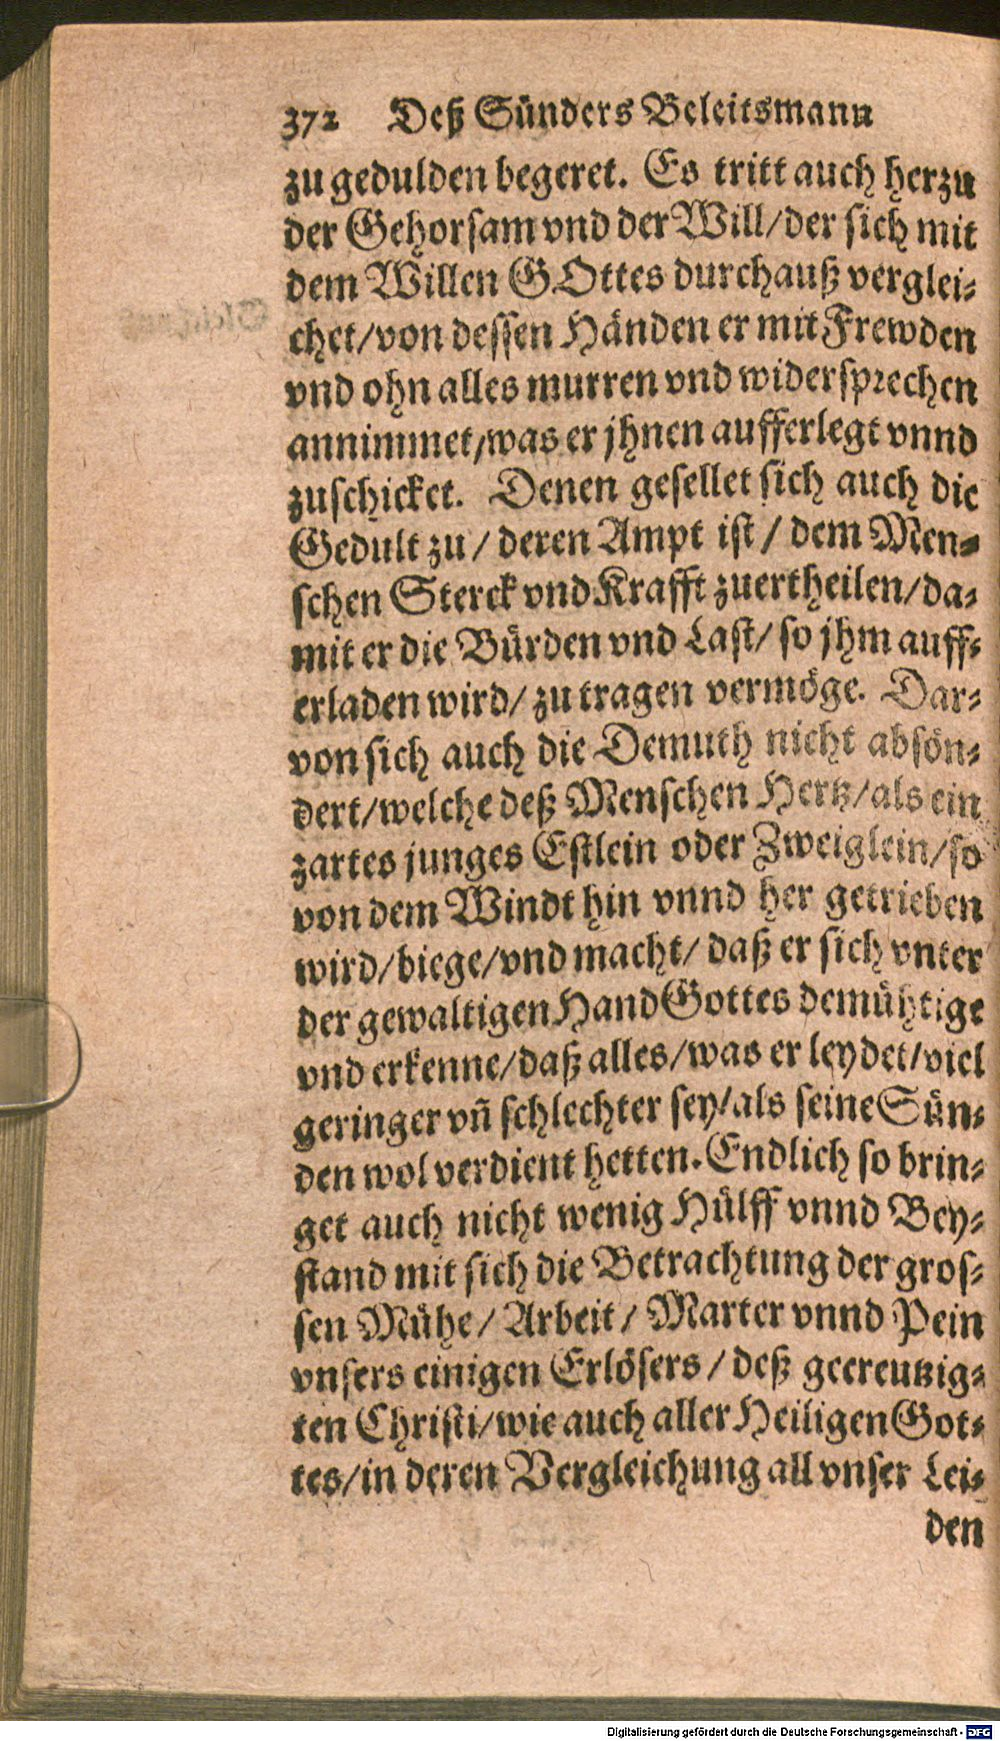 372 Deß Sünders Beleitsmann
zu gedulden begeret. Es tritt auch herzu
der Gehorsam vnd der Will/der sich mit
dem Willen GOttes durchauß verglei-
chet/von dessen Händen er mit Frewden
vnd ohn alles murren vnd widersprechen
annimmet/was er jhnen aufferlegt vnnd
zuschicket. Denen gesellet sich auch die
Gedult zu / deren Ampt ist / dem Men-
schen Sterck vnd Krafft zuertheilen/da-
mit er die Bürden vnd Last/ so jhm auff-
erladen wird/ zu tragen vermöge. Dar-
von sich auch die Demuth nicht absön-
dert/welche deß Menschen Hertz/als ein
zartes junges Estlein oder Zweiglein/so
von dem Windt hin vnnd her getrieben
wird/biege/vnd macht/ daß er sich vnter
der gewaltigen Hand Gottes demühtige
vnd erkenne/daß alles/was er leydet/viel
geringer vñ schlechter sey/als seine Sün-
den wol verdient hetten. Endlich so brin-
get auch nicht wenig Hülff vnnd Bey-
stand mit sich die Betrachtung der gros-
sen Mühe/ Arbeit/ Marter vnnd Pein
vnsers einigen Erlösers / deß gecreutzig-
ten Christi/wie auch aller Heiligen Got-
tes/in deren Vergleichung all vnser Lei-
den
Digitalisierung gefördert durch die Deutsche Forschungsgemeinschaft - DFG